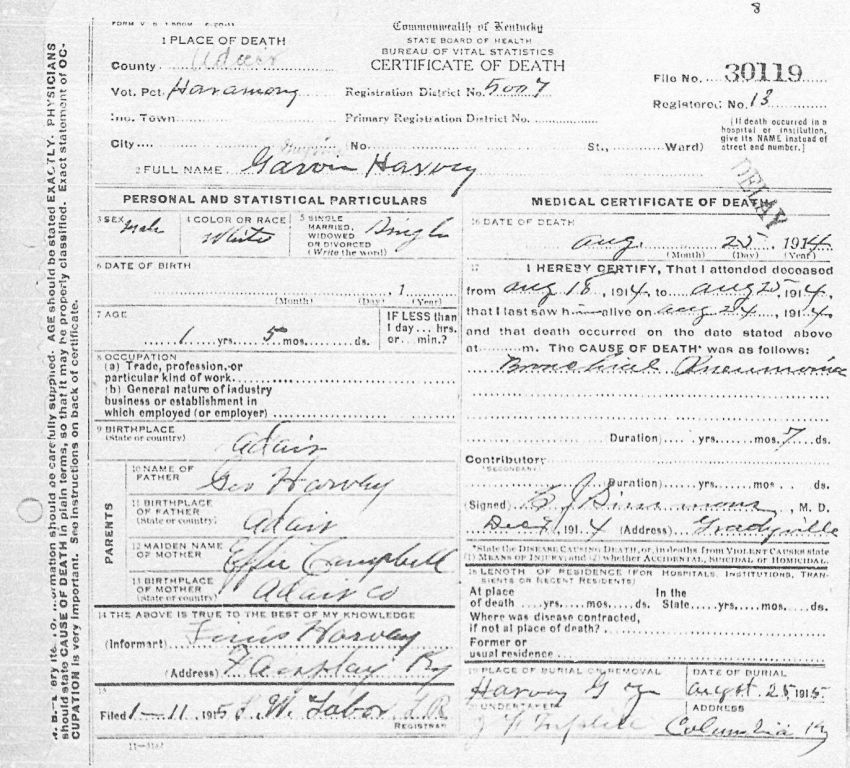 8
Commonwealth of Kentucky
STATE BOARD OF HEALTH
BUREAU OF VITAL STATISTICS
CERTIFICATE OF DEATH
1 PLACE OF DEATH
County Adair
Vot. Pct. Haramony
Inc. Town
City No. St., Ward)
Registration District No. 5007
Primary Registration District No.
File No. 30119
Registered No. 13
[If death occurred in a
hospital or institution,
give its NAME instead of
street and number.]
2 FULL NAME Garvin Harvey
DELAY
PERSONAL AND STATISTICAL PARTICULARS
3 SEX Male
4 COLOR OR RACE White
5 SINGLE
MARRIED,
WIDOWED
OR DIVORCED
(Write the word)
Single
6 DATE OF BIRTH
, 1
(Month) (Day) (Year)
7 AGE
1 yrs. 5 mos. ds.
IF LESS than
1 day... hrs.
or... min.?
8 OCCUPATION
(a) Trade, profession, or
particular kind of work
(b) General nature of industry
business or establishment in
which employed (or employer)
9 BIRTHPLACE
(State or country)
Adair
PARENTS
10 NAME OF
FATHER
Geo Harvey
11 BIRTHPLACE
OF FATHER
(State or country)
Adair
12 MAIDEN NAME
OF MOTHER
Effie Campbell
13 BIRTHPLACE
OF MOTHER
(State or country)
Adair Co
14 THE ABOVE IS TRUE TO THE BEST OF MY KNOWLEDGE
(Informant) Harvey
(Address) Fairplay Ky
15
Filed 1-11, 1915 S. W. Tabor L R
REGISTRAR
MEDICAL CERTIFICATE OF DEATH
16 DATE OF DEATH
Aug. 25 1914
(Month) (Day) (Year)
17 I HEREBY CERTIFY, That I attended deceased
from Aug 18, 1914, to Aug 25, 1914,
that I last saw him alive on Aug 24, 1914
and that death occurred on the date stated above
at m. The CAUSE OF DEATH* was as follows:
Bronchial Pneumonia
(Duration) yrs. mos. 7 ds.
Contributory
(SECONDARY)
(Duration) yrs. mos. ds.
(Signed) Simmons, M. D.
Dec, 1914 (Address) Gradyville
*State the DISEASE CAUSING DEATH, or, in deaths from VIOLENT CAUSES state
(1) MEANS OF INJURY; and (2) whether ACCIDENTAL, SUICIDAL OR HOMICIDAL.
18 LENGTH OF RESIDENCE (FOR HOSPITALS, INSTITUTIONS, TRANSIENTS OR RECENT RESIDENTS)
At place
of death yrs. mos. ds.
In the
State yrs. mos. ds.
Where was disease contracted,
if not at place of death?
Former or
usual residence
19 PLACE OF BURIAL OR REMOVAL
Harvey G
DATE OF BURIAL
August 25 1915
20 UNDERTAKER
ADDRESS
Columbia Ky
should state CAUSE OF DEATH in plain terms, so that it may be properly classified. Exact statement of OC-
CUPATION is very important. See instructions on back of certificate.